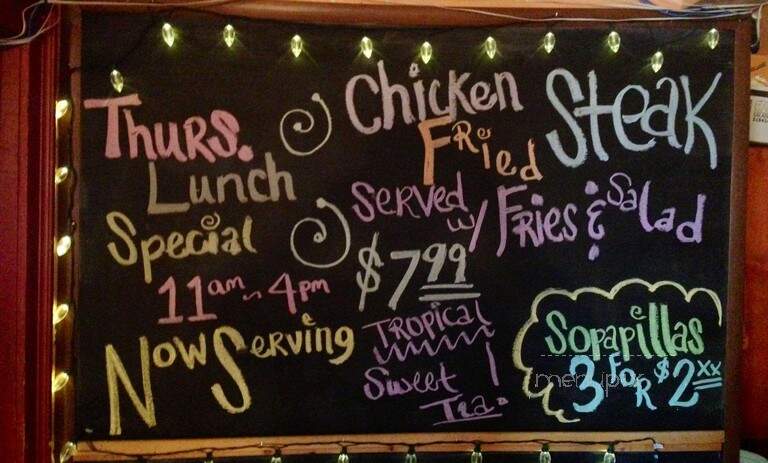 THURS.
Lunch
Special
11am ~ 4pm
Chicken
FRied
Steak
Served
w/ Fries & Salad
$7 99
Now Serving
TROPICAL
Sweet
Tea
Sopapillas
3 FOR $2 xx